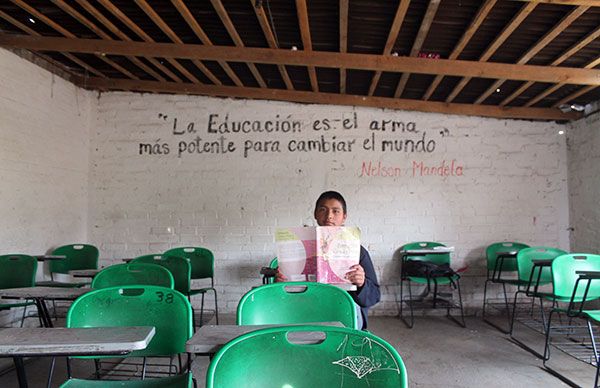 "La Educación es el arma
más potente para cambiar el mundo"
Nelson Mandela
38